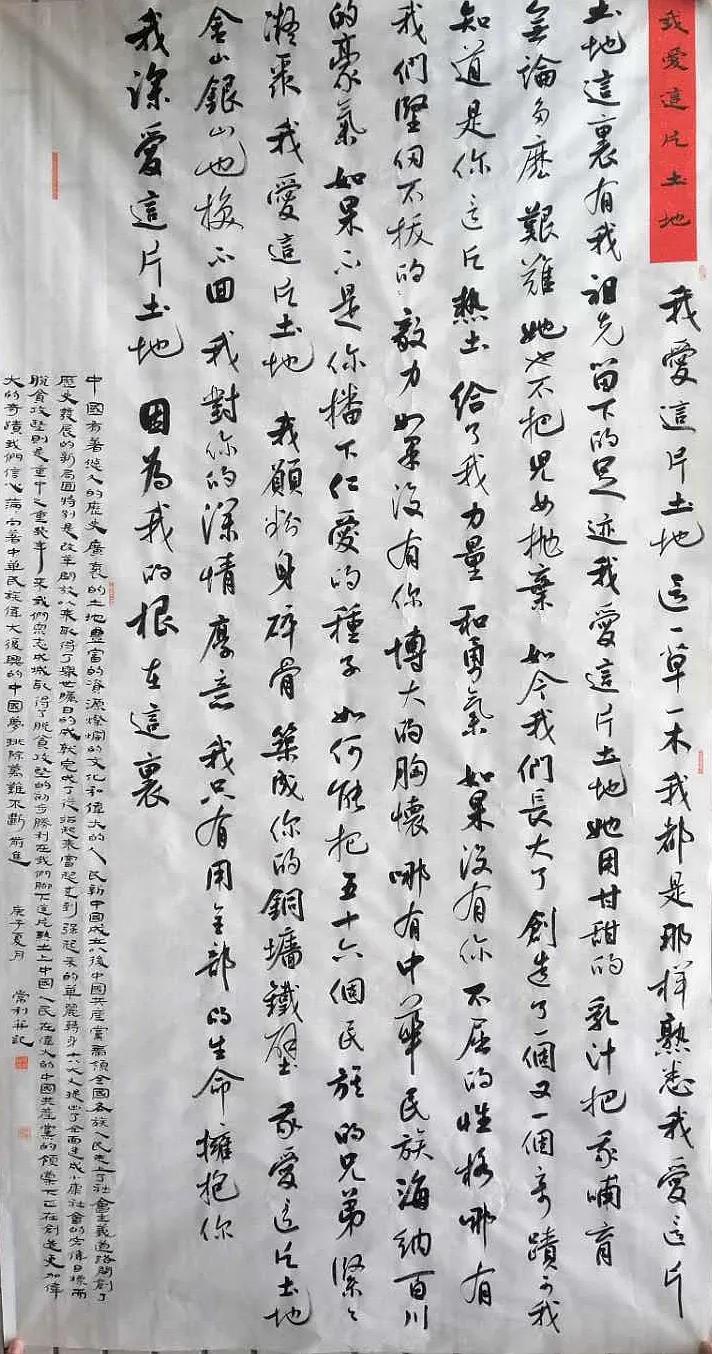 我愛這片土地
我愛這片土地這一草一木我都是那样熟悉我愛這片
土地這裏有我祖先留下的足迹我愛這片土地她用甘甜的乳汁把我哺育
無論多麽艱難她也不把兒女抛棄如今我們長大了創造了一個又一個奇蹟可我
知道是你這片熱土給了我力量和勇氣如果没有你不屈的性格哪有
我們堅韧不拔的毅力如果没有你博大的胸懷哪有中華民族海纳百川
的豪氣如果不是你播下仁愛的種子如何能把五十六個民族的兄弟緊緊
凝聚我愛這片土地我願粉身碎骨築成你的銅墻鐵壁我愛這片土地
金山銀山也换不回我對你的深情厚意我只有用全部的生命擁抱你
我深愛這片土地因為我的根在這裏
中國有著悠久的歷史廣袤的土地豐富的資源燦爛的文化和偉大的人民新中國成立以後中國共産黨帶領全國各族人民走上了社會主義道路開創了
歷史發展的新局面特别是改革開放以來取得了舉世矚目的成就完成了從站起來富起來到强起來的華麗轉身十八大提出了全面建成小康社會的宏偉目標而
脱貧攻堅則是重中之重幾年來我們衆志成城取得了脱貧攻堅的初步勝利在我們脚下這片熱土上中國人民在偉大的中國共産黨的領導下正在創造更加偉
大的奇蹟我們信心滿向著中華民族偉大復興的中國夢排除萬難不斷前進 庚子夏月 常利華記